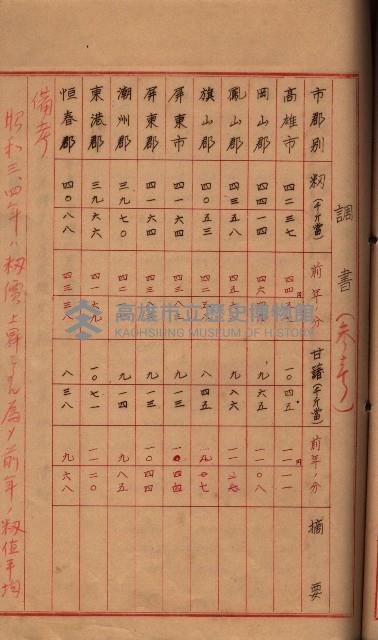 調書(參考)
市郡別 籾(千斤當) 前年ノ分 甘藷(千斤當) 前年ノ分 摘要
高雄市 四二三七 一〇四五 一一一一
岡山郡 四四一四 九六五 一一〇八
鳳山郡 四三五八 九八六
旗山郡 四〇五三 八四五
屏東市 四一六四 九一三
屏東郡 四一六四 九一三 一〇四四
潮州郡 三九七〇 九一四 九八五
東港郡 三九六六 四一七九 一〇七一 一一二〇
恒春郡 四〇八八 四三三八 八三八 九六八
備考
昭和三、四年ハ籾價上昇シタル為メ前年ノ籾值平均
高雄市立歷史博物館
KAOHSIUNG MUSEUM OF HISTORY